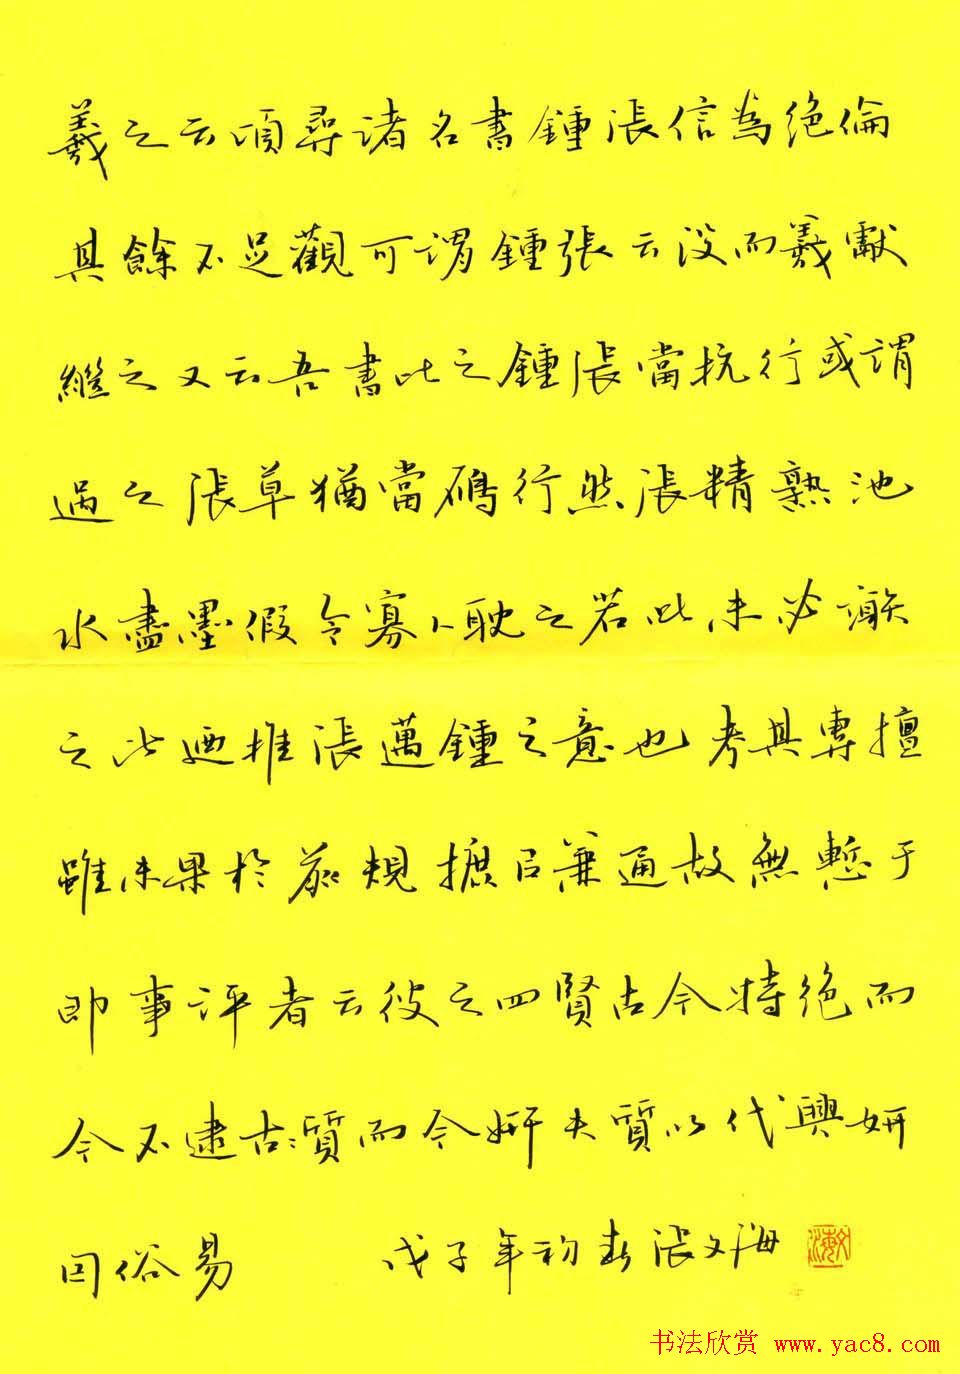 羲之云頃尋諸名書鍾張信為絕倫
其餘不足觀可謂鍾張云没而羲獻
繼之又云吾書比之鍾張當抗行或謂
過之張草猶當鴈行然張精熟池
水盡墨假令寡人耽之若此未必謝
之此迺推張邁鍾之意也考其專擅
雖未果於前規摭以兼通故無慙于
即事評者云彼之四賢古今特絕而
今不逮古古質而今妍夫質以代興妍
因俗易
戊子年初春張文海
文海
书法欣赏 www.yac8.com